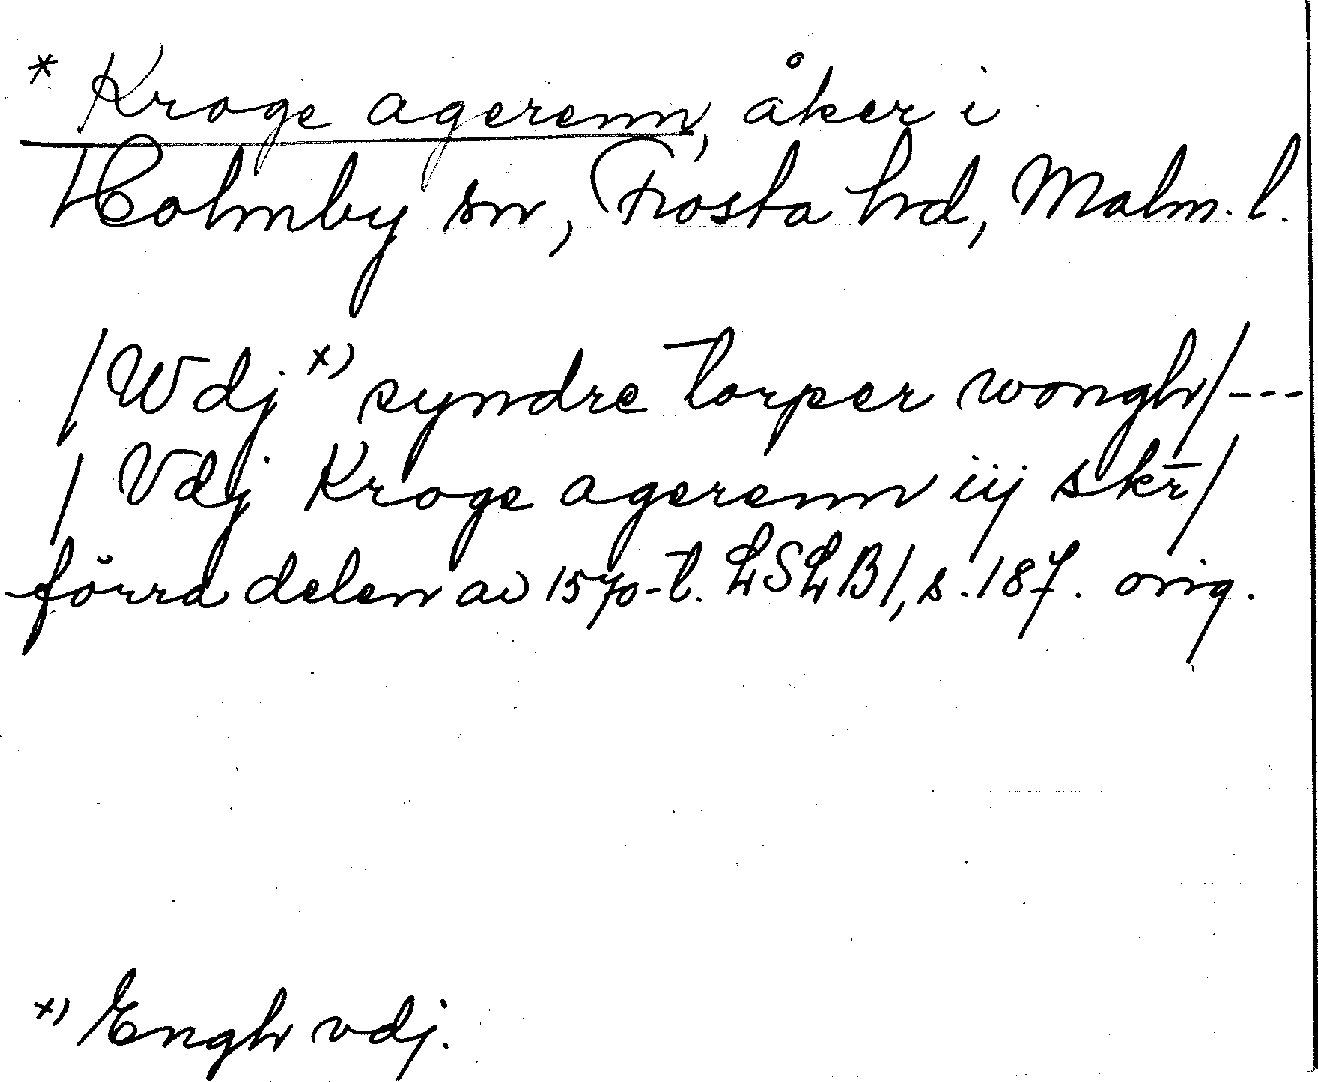 * Kroge agerenn, åker i
Holmby sn, Frosta hd, Malm. l.
/Wdj *) syndre torper wongh/---
/ Vdj Kroge agerenn iij skr̄/
förra delen av 1570-t. LSLB1, s. 187. orig.
*) Engh vdj.